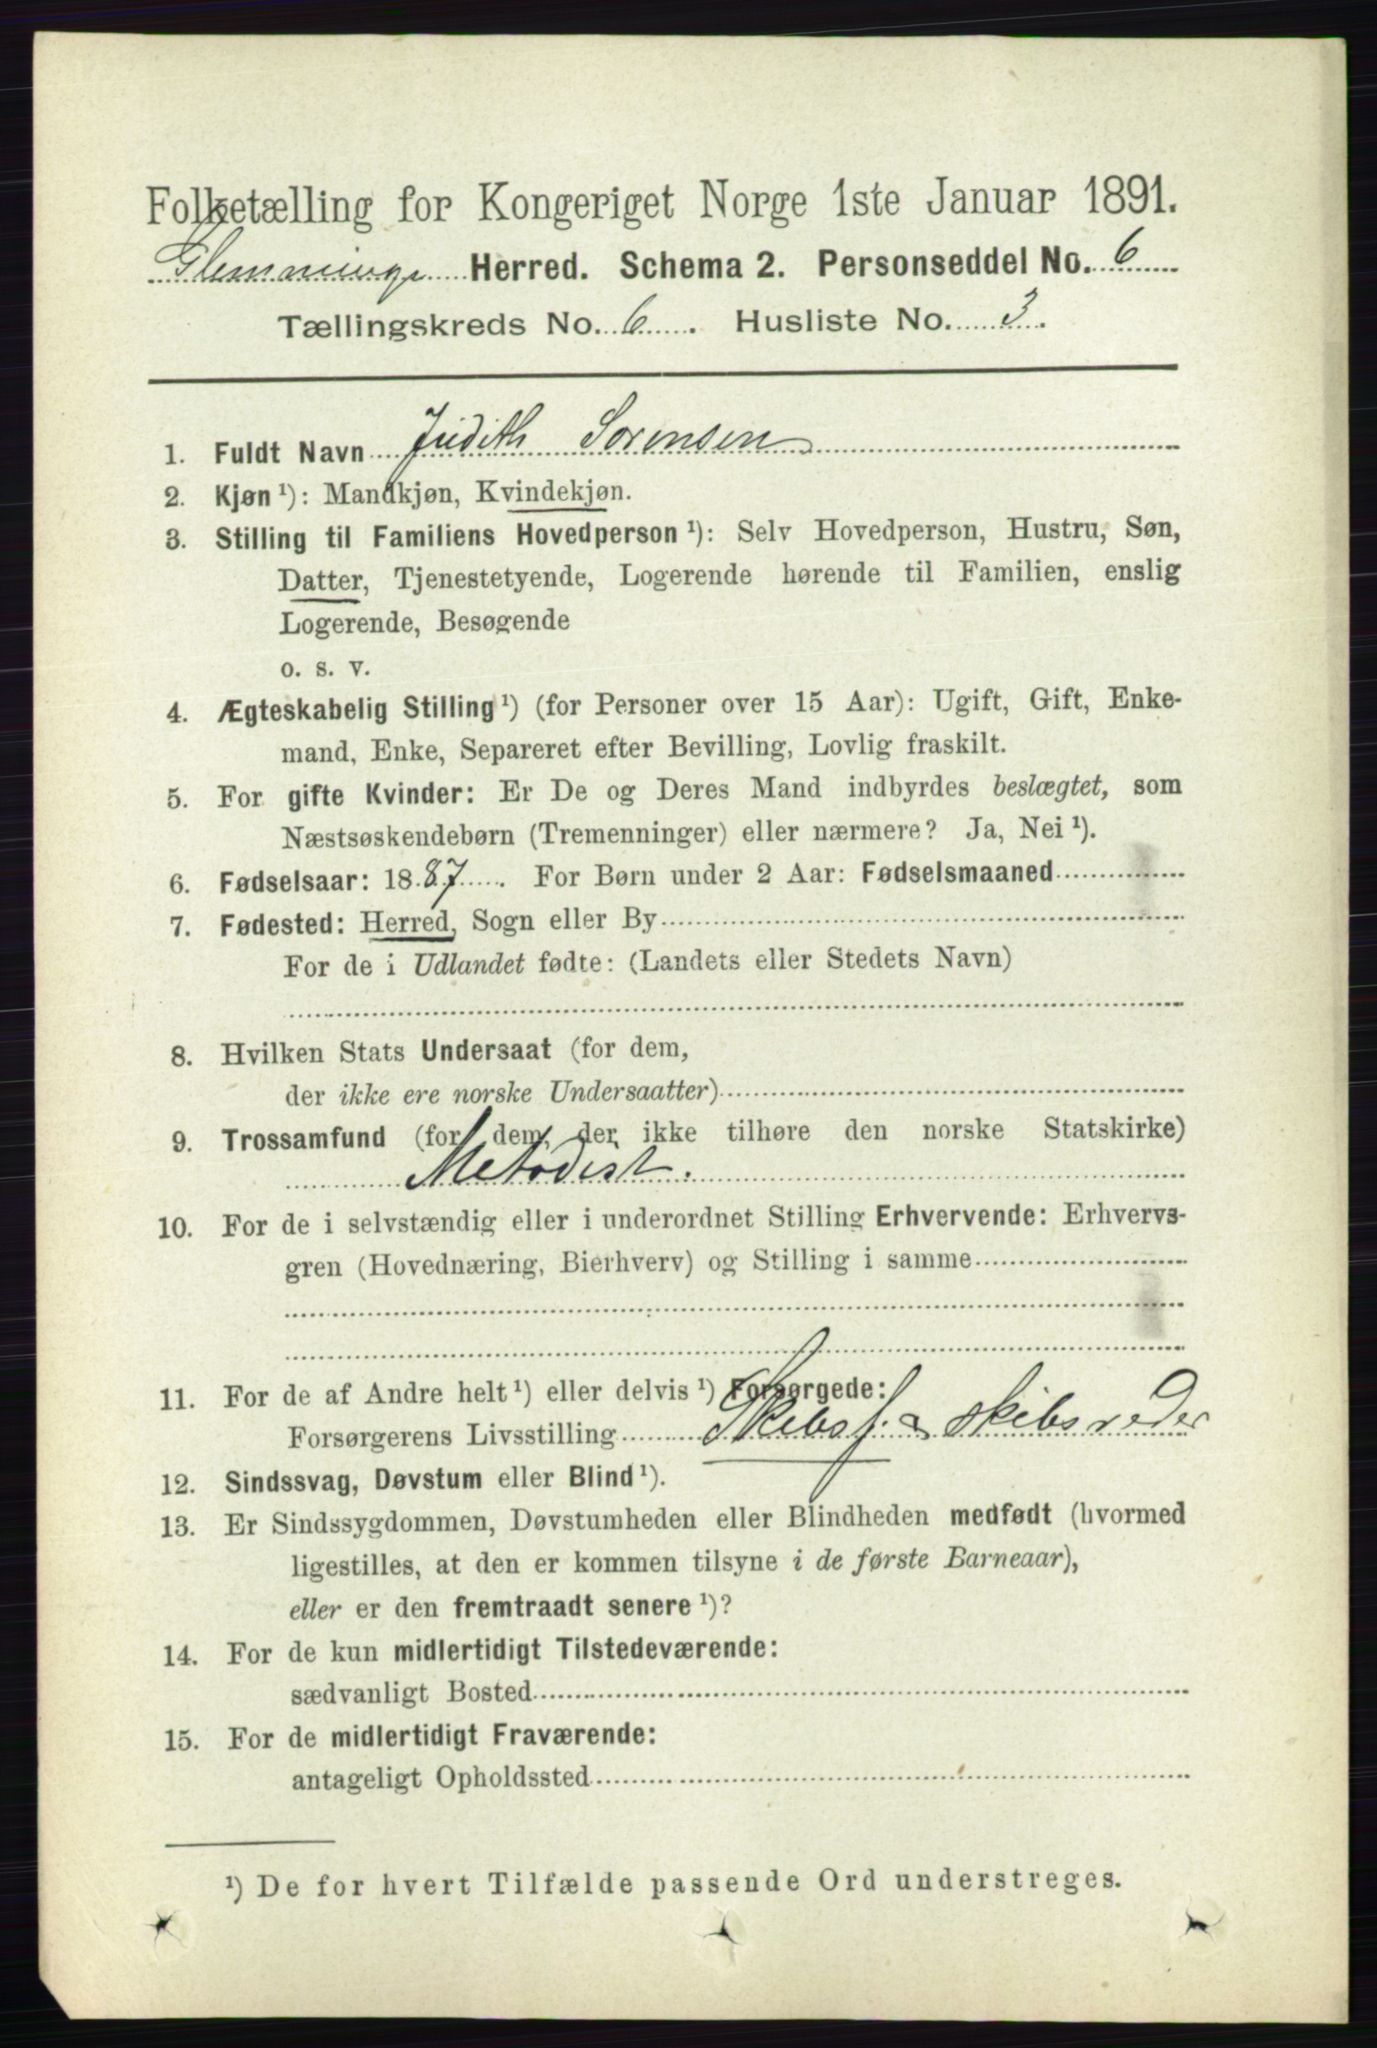 Folketælling for Kongeriget Norge 1ste Januar 1891.
Glemminge Herred. Schema 2. Personseddel No. 6
Tællingskreds No. 6. Husliste No. 3.
1. Fuldt Navn Judith Sorensen
2. Kjøn ¹): Mandkjøn, Kvindekjøn.
3. Stilling til Familiens Hovedperson ¹): Selv Hovedperson, Hustru, Søn,
Datter, Tjenestetyende, Logerende hørende til Familien, enslig
Logerende, Besøgende
o. s. v.
4. Ægteskabelig Stilling ¹) (for Personer over 15 Aar): Ugift, Gift, Enke-
mand, Enke, Separeret efter Bevilling, Lovlig fraskilt.
5. For gifte Kvinder: Er De og Deres Mand indbyrdes beslægtet, som
Næstsøskendebørn (Tremenninger) eller nærmere? Ja, Nei ¹).
6. Fødselsaar: 1887. For Børn under 2 Aar: Fødselsmaaned
7. Fødested: Herred, Sogn eller By
For de i Udlandet fødte: (Landets eller Stedets Navn)
8. Hvilken Stats Undersaat (for dem,
der ikke ere norske Undersaatter)
9. Trossamfund (for dem, der ikke tilhøre den norske Statskirke)
Metodist.
10. For de i selvstændig eller i underordnet Stilling Erhvervende: Erhvervs-
gren (Hovednæring, Bierhverv) og Stilling i samme
11. For de af Andre helt ¹) eller delvis ¹) Forsørgede:
Forsørgerens Livsstilling Skibsf. & skibsreder
12. Sindssvag, Døvstum eller Blind ¹).
13. Er Sindssygdommen, Døvstumheden eller Blindheden medfødt (hvormed
ligestilles, at den er kommen tilsyne i de første Barneaar),
eller er den fremtraadt senere ¹)?
14. For de kun midlertidigt Tilstedeværende:
sædvanligt Bosted
15. For de midlertidigt Fraværende:
antageligt Opholdssted
¹) De for hvert Tilfælde passende Ord understreges.